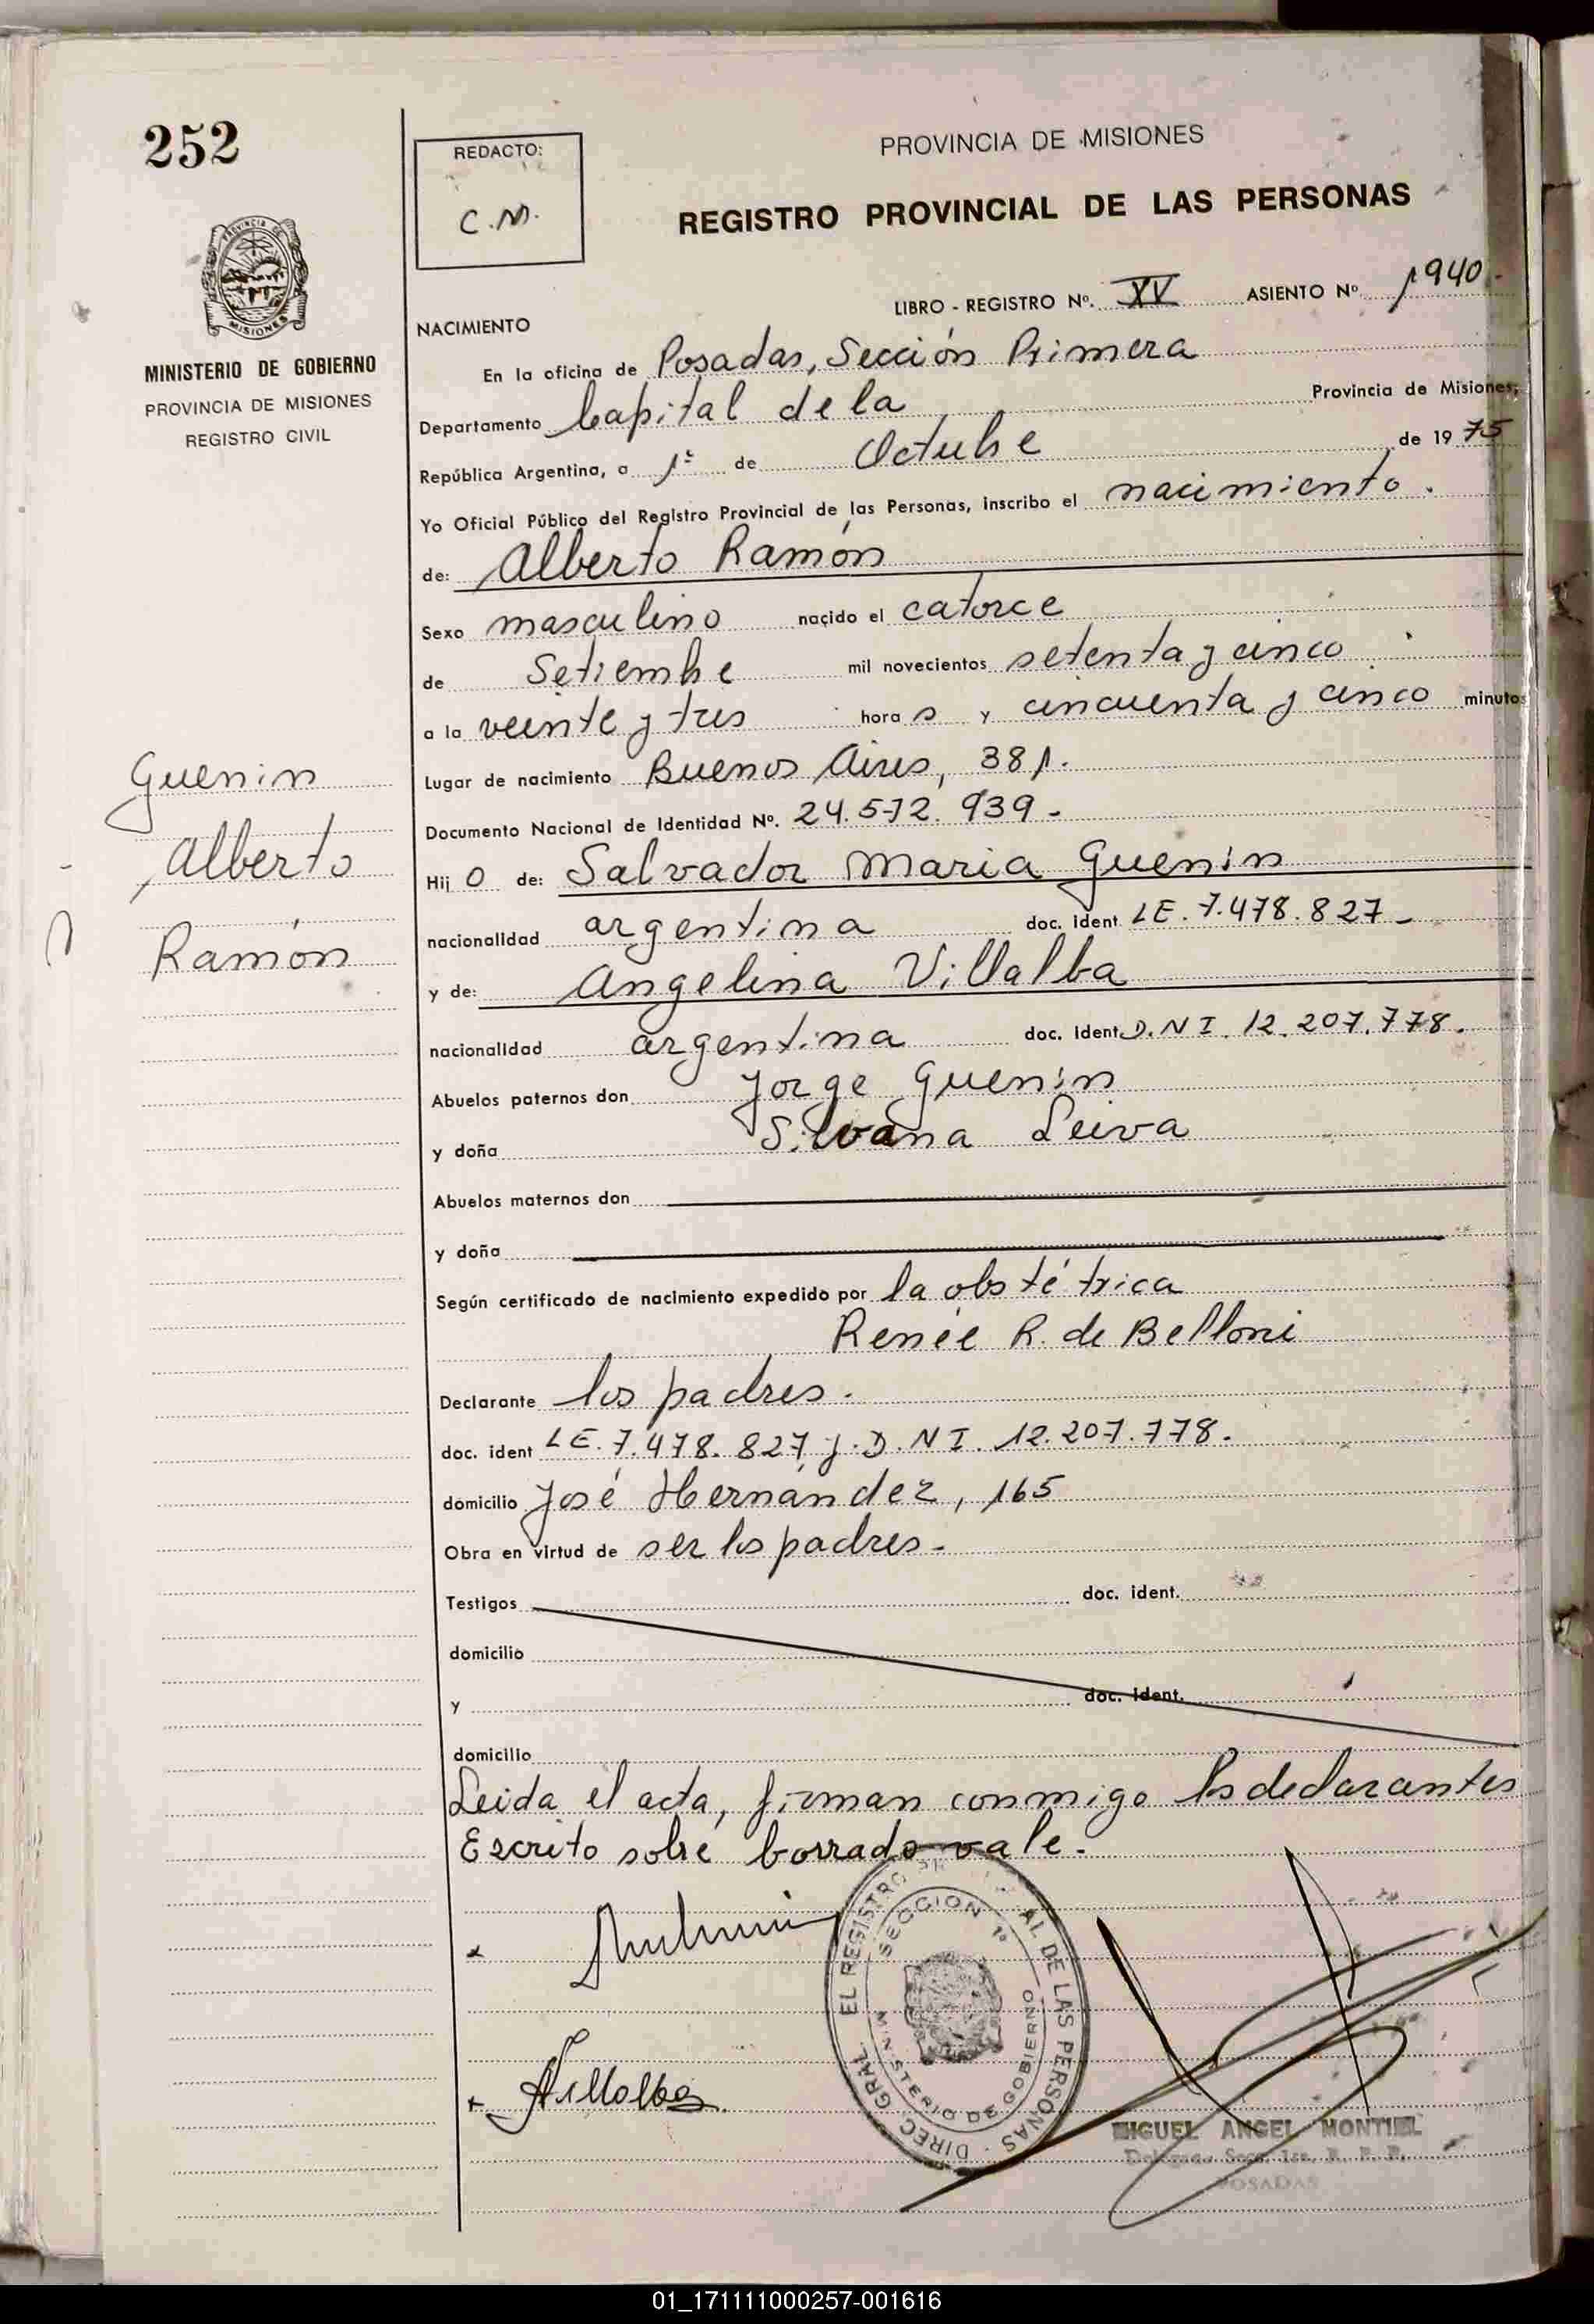 252
REDACTO:
C.M.
PROVINCIA DE MISIONES
REGISTRO PROVINCIAL DE LAS PERSONAS
PROVINCIA DE
MISIONES
MINISTERIO DE GOBIERNO
PROVINCIA DE MISIONES
REGISTRO CIVIL
LIBRO - REGISTRO Nº. XV ASIENTO Nº 1940.-
NACIMIENTO
En la oficina de Posadas, Sección Primera
Departamento Capital de la Provincia de Misiones;
República Argentina, a 1º de Octubre de 1975
Yo Oficial Público del Registro Provincial de las Personas, inscribo el nacimiento.
de: Alberto Ramón
Sexo masculino nacido el catorce
de Setiembre mil novecientos setenta y cinco
a la veinte y tres hora s y cincuenta y cinco minutos
Lugar de nacimiento Buenos Aires, 381.
Documento Nacional de Identidad Nº. 24.572.939.-
Hij o de: Salvador Maria Guenin
nacionalidad argentina doc. ident. LE. 7.478.827-
y de: Angelina Villalba
nacionalidad argentina doc. ident. D.N I. 12.207.778.
Abuelos paternos don Jorge Guenin
y doña Silvana Leiva
Abuelos maternos don
y doña
Según certificado de nacimiento expedido por la obstétrica
Renée R. de Belloni
Declarante los padres.
doc. ident LE. 7.478.827 y D.N I. 12.207.778.
domicilio José Hernández, 165
Obra en virtud de ser los padres.-
Testigos doc. ident.
domicilio
y doc. ident.
domicilio
Leida el acta, firman conmigo los declarantes
Escrito sobre borrado vale.
Guenin
Alberto
Ramón
AVillalba
DIREC. GRAL. EL REGISTRO AL DE LAS PERSONAS
SECCION 1º
MINISTERIO DE GOBIERNO
MIGUEL ANGEL MONTIEL
POSADAS
01_171111000257-001616